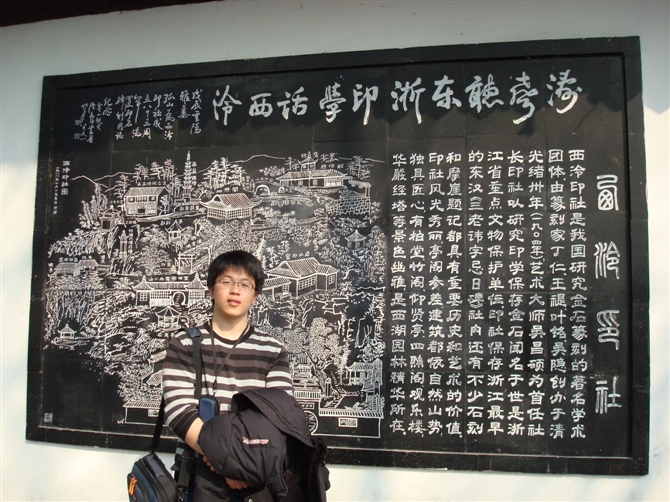 濤聲聽东浙印學話西泠
西泠印社
西泠印社是我国研究金石篆刻的著名学术
团体由篆刻家丁仁王禔叶铭吴隐创办于清
光绪卅年(一九〇四年)艺术大师吴昌硕为首任社
长印社以研究印学保存金石闻名于世是浙
江省重点文物保护单位印社保存浙江最早
的东汉三老讳字忌日碑社内还有不少石刻
和摩崖题记都具有重要历史和艺术的价值
印社风光秀丽亭阁参差建筑都依自然山势
独具匠心有柏堂竹阁仰贤亭四照阁观乐楼
华严经塔等景色幽雅是西湖园林精华所在
戊辰重陽
雅集
孤山
紀念
西泠印社图